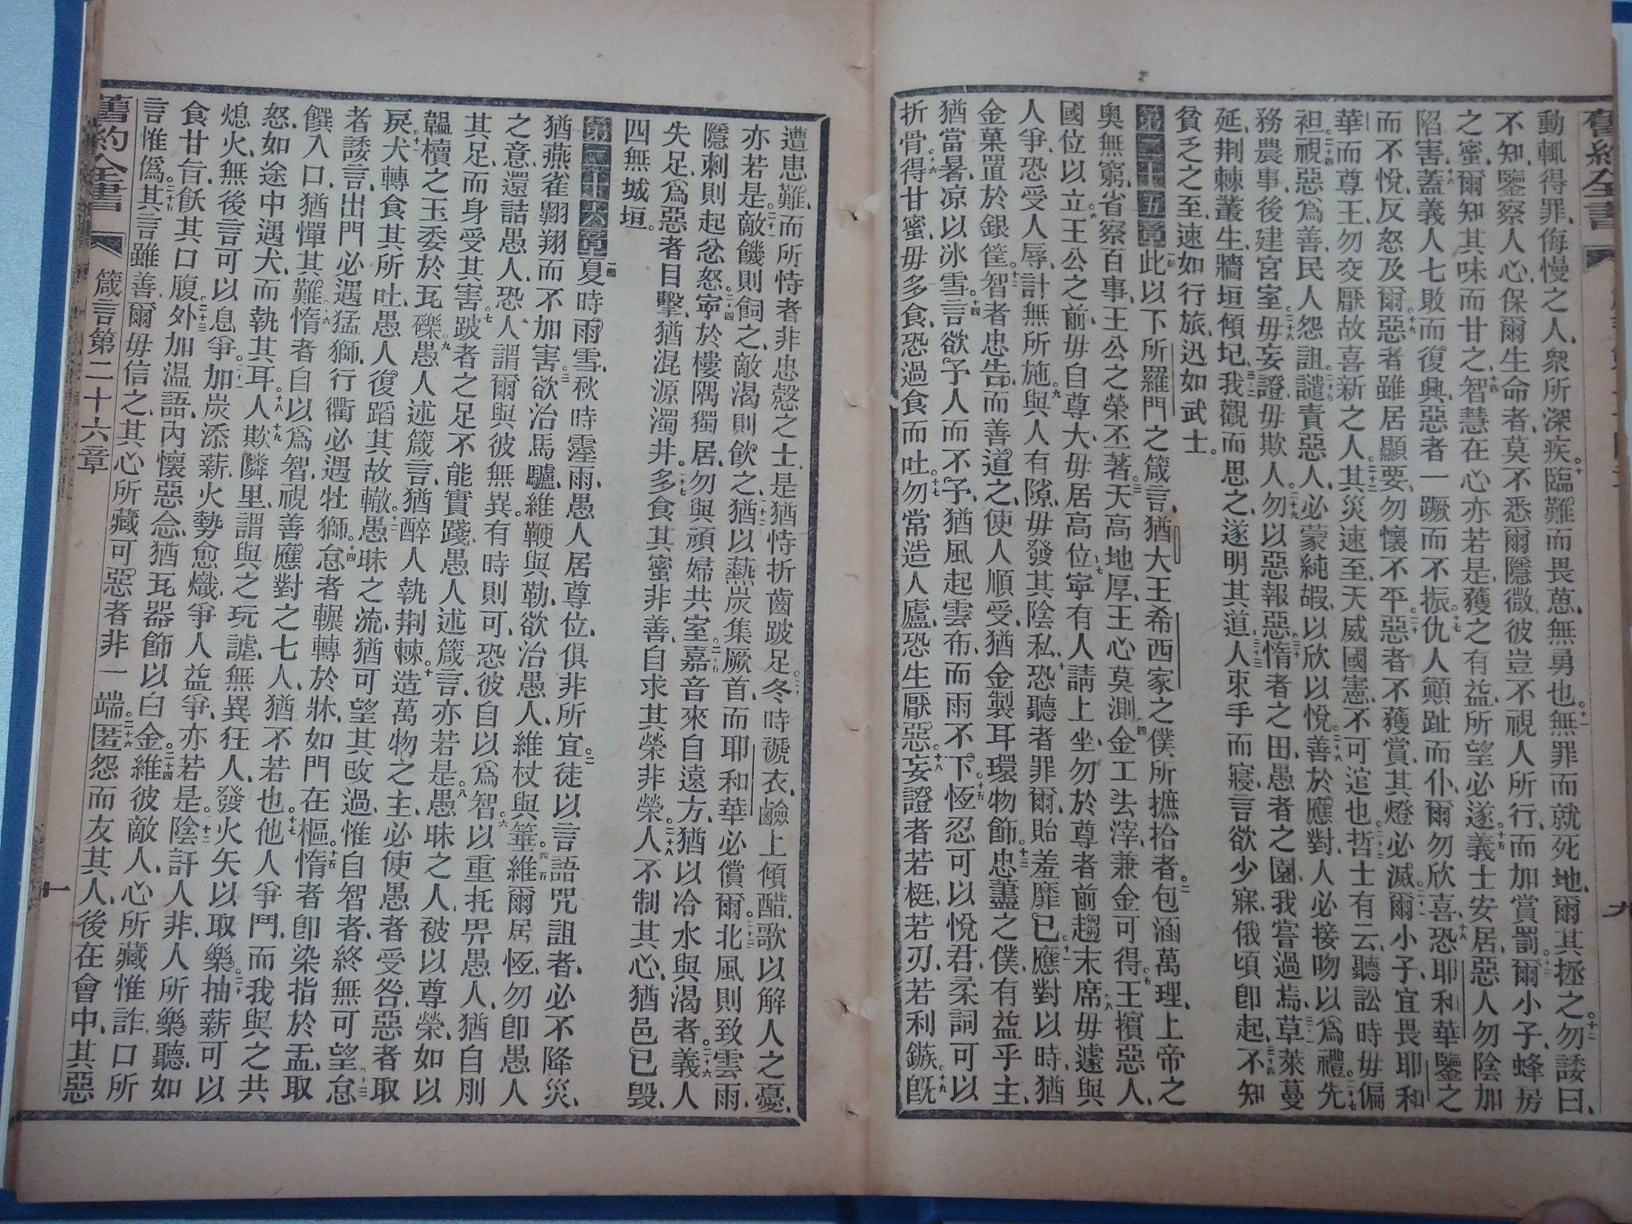 動輒得罪、侮慢之人、衆所深疾、臨難而畏葸、無勇也、無罪而就死地、爾其拯之、勿諉曰、
不知、鑒察人心、保爾生命者、莫不悉爾隱微、彼豈不視人所行、而加賞罰、爾小子、蜂房
之蜜、爾知其味而甘之、智慧在心、亦若是、獲之有益、所望必遂、義士安居、惡人勿陰加
陷害、蓋義人七敗而復興、惡者一蹶而不振、仇人顚趾而仆、爾勿欣喜、恐耶和華鑒之
而不悅、反怒及爾、惡者雖居顯要、勿懷不平、惡者不獲賞、其燈必滅、爾小子宜畏耶和
華、而尊王、勿交厭故喜新之人、其災速至、天威國憲、不可逭也、哲士有云、聽訟時毋偏
袒、視惡爲善、民人怨詛、譴責惡人、必蒙純嘏、以欣以悅、善於應對、人必接吻以爲禮、先
務農事、後建宮室、毋妄證、毋欺人、勿以惡報惡、惰者之田、愚者之園、我嘗過焉、草萊蔓
延、荆棘叢生、牆垣傾圮、我觀而思之、遂明其道、人束手而寢、言欲少寐、俄頃卽起、不知
貧乏之至、速如行旅、迅如武士。
第二十五章 此以下所羅門之箴言、猶大王希西家之僕所摭拾者、包涵萬理、上帝之
奥無窮、省察百事、王公之榮丕著、天高地厚、王心莫測、金工去滓、兼金可得、王擯惡人、
國位以立、王公之前、毋自尊大、毋居高位、寧有人請上坐、勿於尊者前趨末席、毋遽與
人爭、恐受人辱、計無所施、與人有隙、毋發其陰私、恐聽者罪爾、貽羞靡已、應對以時、猶
金菓置於銀筐、智者忠告、而善道之、使人順受、猶金製耳環物飾、忠藎之僕有益乎主、
猶當暑、凉以冰雪、言欲予人而不予、猶風起雲布、而雨不下、恆忍可以悅君、柔詞可以
折骨、得甘蜜毋多食、恐過食而吐、勿常造人廬、恐生厭惡、妄證者若梃、若刃、若利鏃、旣
遭患難、而所恃者非忠慤之士、是猶恃折齒跛足、冬時褫衣、鹼上傾醋、歌以解人之憂、
亦若是、敵饑則飼之、敵渴則飮之、猶以熱炭集厥首、而耶和華必償爾、北風則致雲雨、
隱刺則起忿怒、寧於樓隅獨居、勿與頑婦共室、嘉音來自遠方、猶以冷水與渴者、義人
失足、爲惡者目擊、猶混源濁井、多食其蜜非善、自求其榮非榮、人不制其心、猶邑已毀、
四無城垣。
第二十六章 夏時雨雪、秋時霪雨、愚人居尊位、俱非所宜、徒以言語咒詛者、必不降災、
猶燕雀翺翔而不加害、欲治馬驢、維鞭與勒、欲治愚人、維杖與箠、維爾居恆、勿卽愚人
之意還詰愚人、恐人謂爾與彼無異、有時則可、恐彼自以爲智、以重托畀愚人、猶自刖
其足、而身受其害、跛者之足不能實踐、愚人述箴言、亦若是、愚昧之人、被以尊榮、如以
韞櫝之玉、委於瓦礫、愚人述箴言、猶醉人執荆棘、造萬物之主、必使愚者受咎、惡者取
戾、犬轉食其所吐、愚人復蹈其故轍、愚昧之流、猶可望其改過、惟自智者、終無可望、怠
者諉言、出門必遇猛獅、行衢必遇牡獅、怠者輾轉於牀、如門在樞、惰者卽染指於盂、取
饌入口、猶憚其難、惰者自以爲智、視善應對之七人、猶不若也、他人爭鬥、而我與之共
怒、如途中遇犬、而執其耳、人欺隣里、謂與之玩謔、無異狂人、發火矢以取樂、抽薪可以
熄火、無後言可以息爭、加炭添薪、火勢愈熾、爭人益爭、亦若是、陰訐人非、人所樂聽、如
食甘旨飫其口腹、外加温語、內懷惡念、猶瓦器飾以白金、維彼敵人、心所藏惟詐、口所
言惟僞、其言雖善、爾毋信之、其心所藏可惡者非一端、匿怨而友其人、後在會中、其惡
舊約全書 箴言第二十六章 十